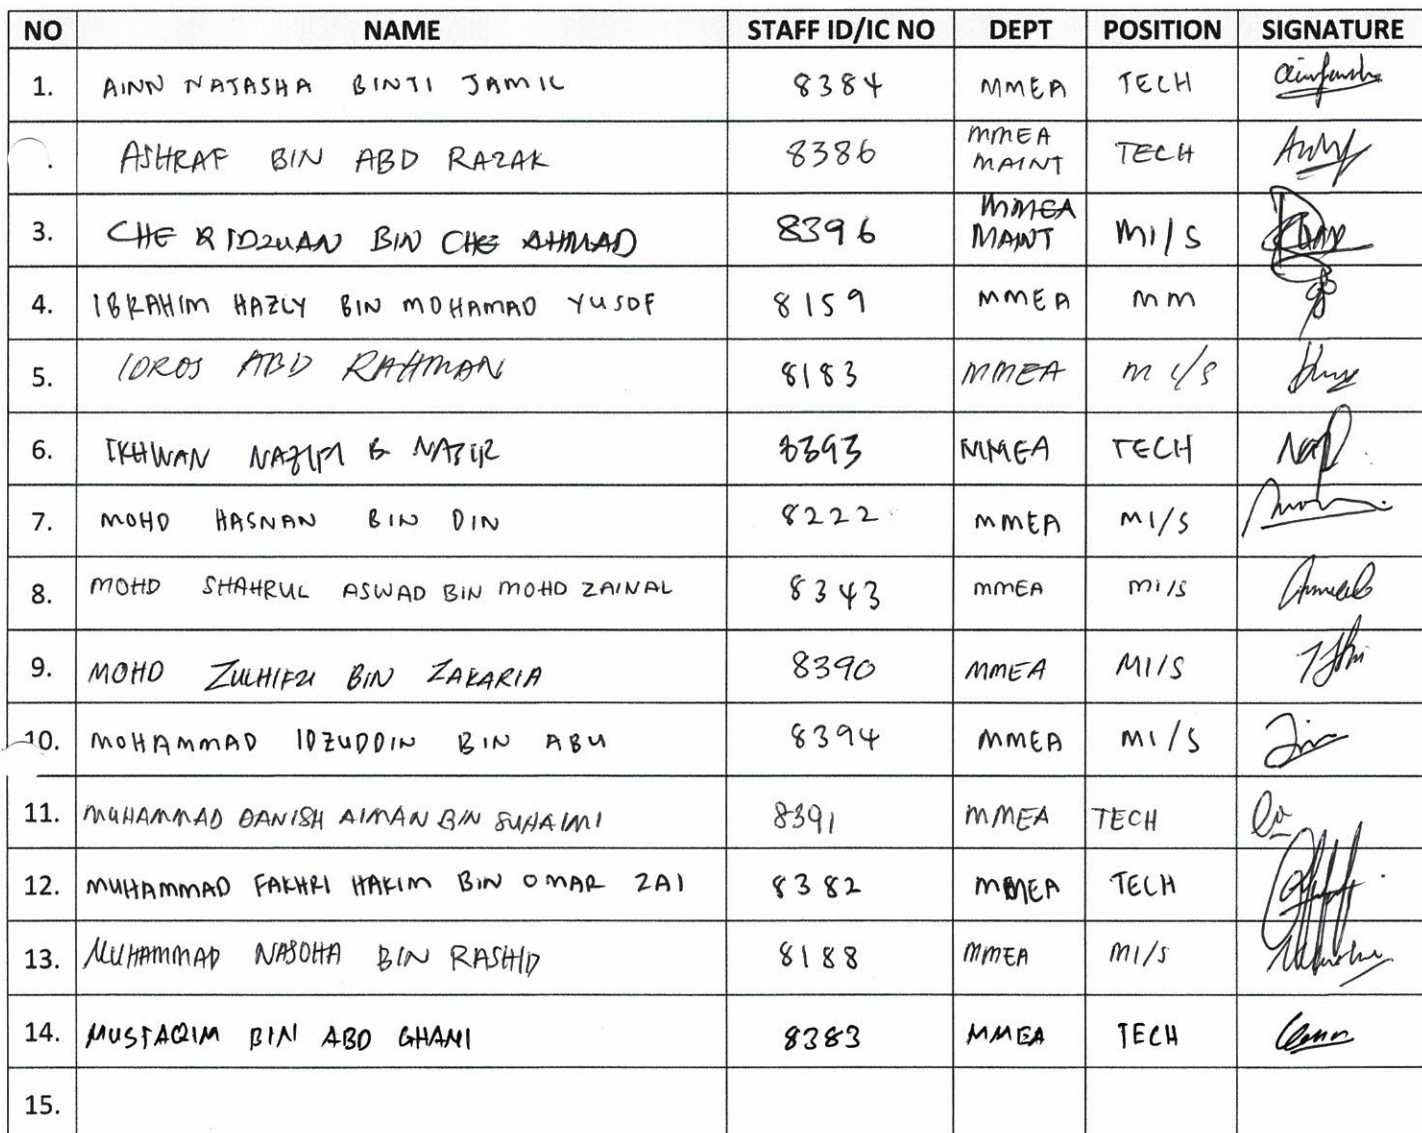 NO NAME STAFF ID/IC NO DEPT POSITION SIGNATURE
1. AINN NATASHA BINTI JAMIL 8384 MMEA TECH
. ASHRAF BIN ABD RAZAK 8386 MMEA MAINT TECH
3. CHE RIDZUAN BIN CHE AHMAD 8396 MMEA MAINT MI/S
4. IBRAHIM HAZLY BIN MOHAMAD YUSOF 8159 MMEA MM
5. IDROS ABD RAHMAN 8183 MMEA MI/S
6. IKHWAN NAZIM B NAZIR 8393 MMEA TECH
7. MOHD HASNAN BIN DIN 8222 MMEA MI/S
8. MOHD SHAHRUL ASWAD BIN MOHD ZAINAL 8343 MMEA MI/S
9. MOHD ZULHIFZI BIN ZAKARIA 8390 MMEA MI/S
10. MOHAMMAD IDZUDDIN BIN ABU 8394 MMEA MI/S
11. MUHAMMAD DANISH AIMAN BIN SUHAIMI 8391 MMEA TECH
12. MUHAMMAD FAKHRI HAKIM BIN OMAR ZAI 8382 MMEA TECH
13. MUHAMMAD NASOHA BIN RASHID 8188 MMEA MI/S
14. MUSTAQIM BIN ABD GHANI 8383 MMEA TECH
15.